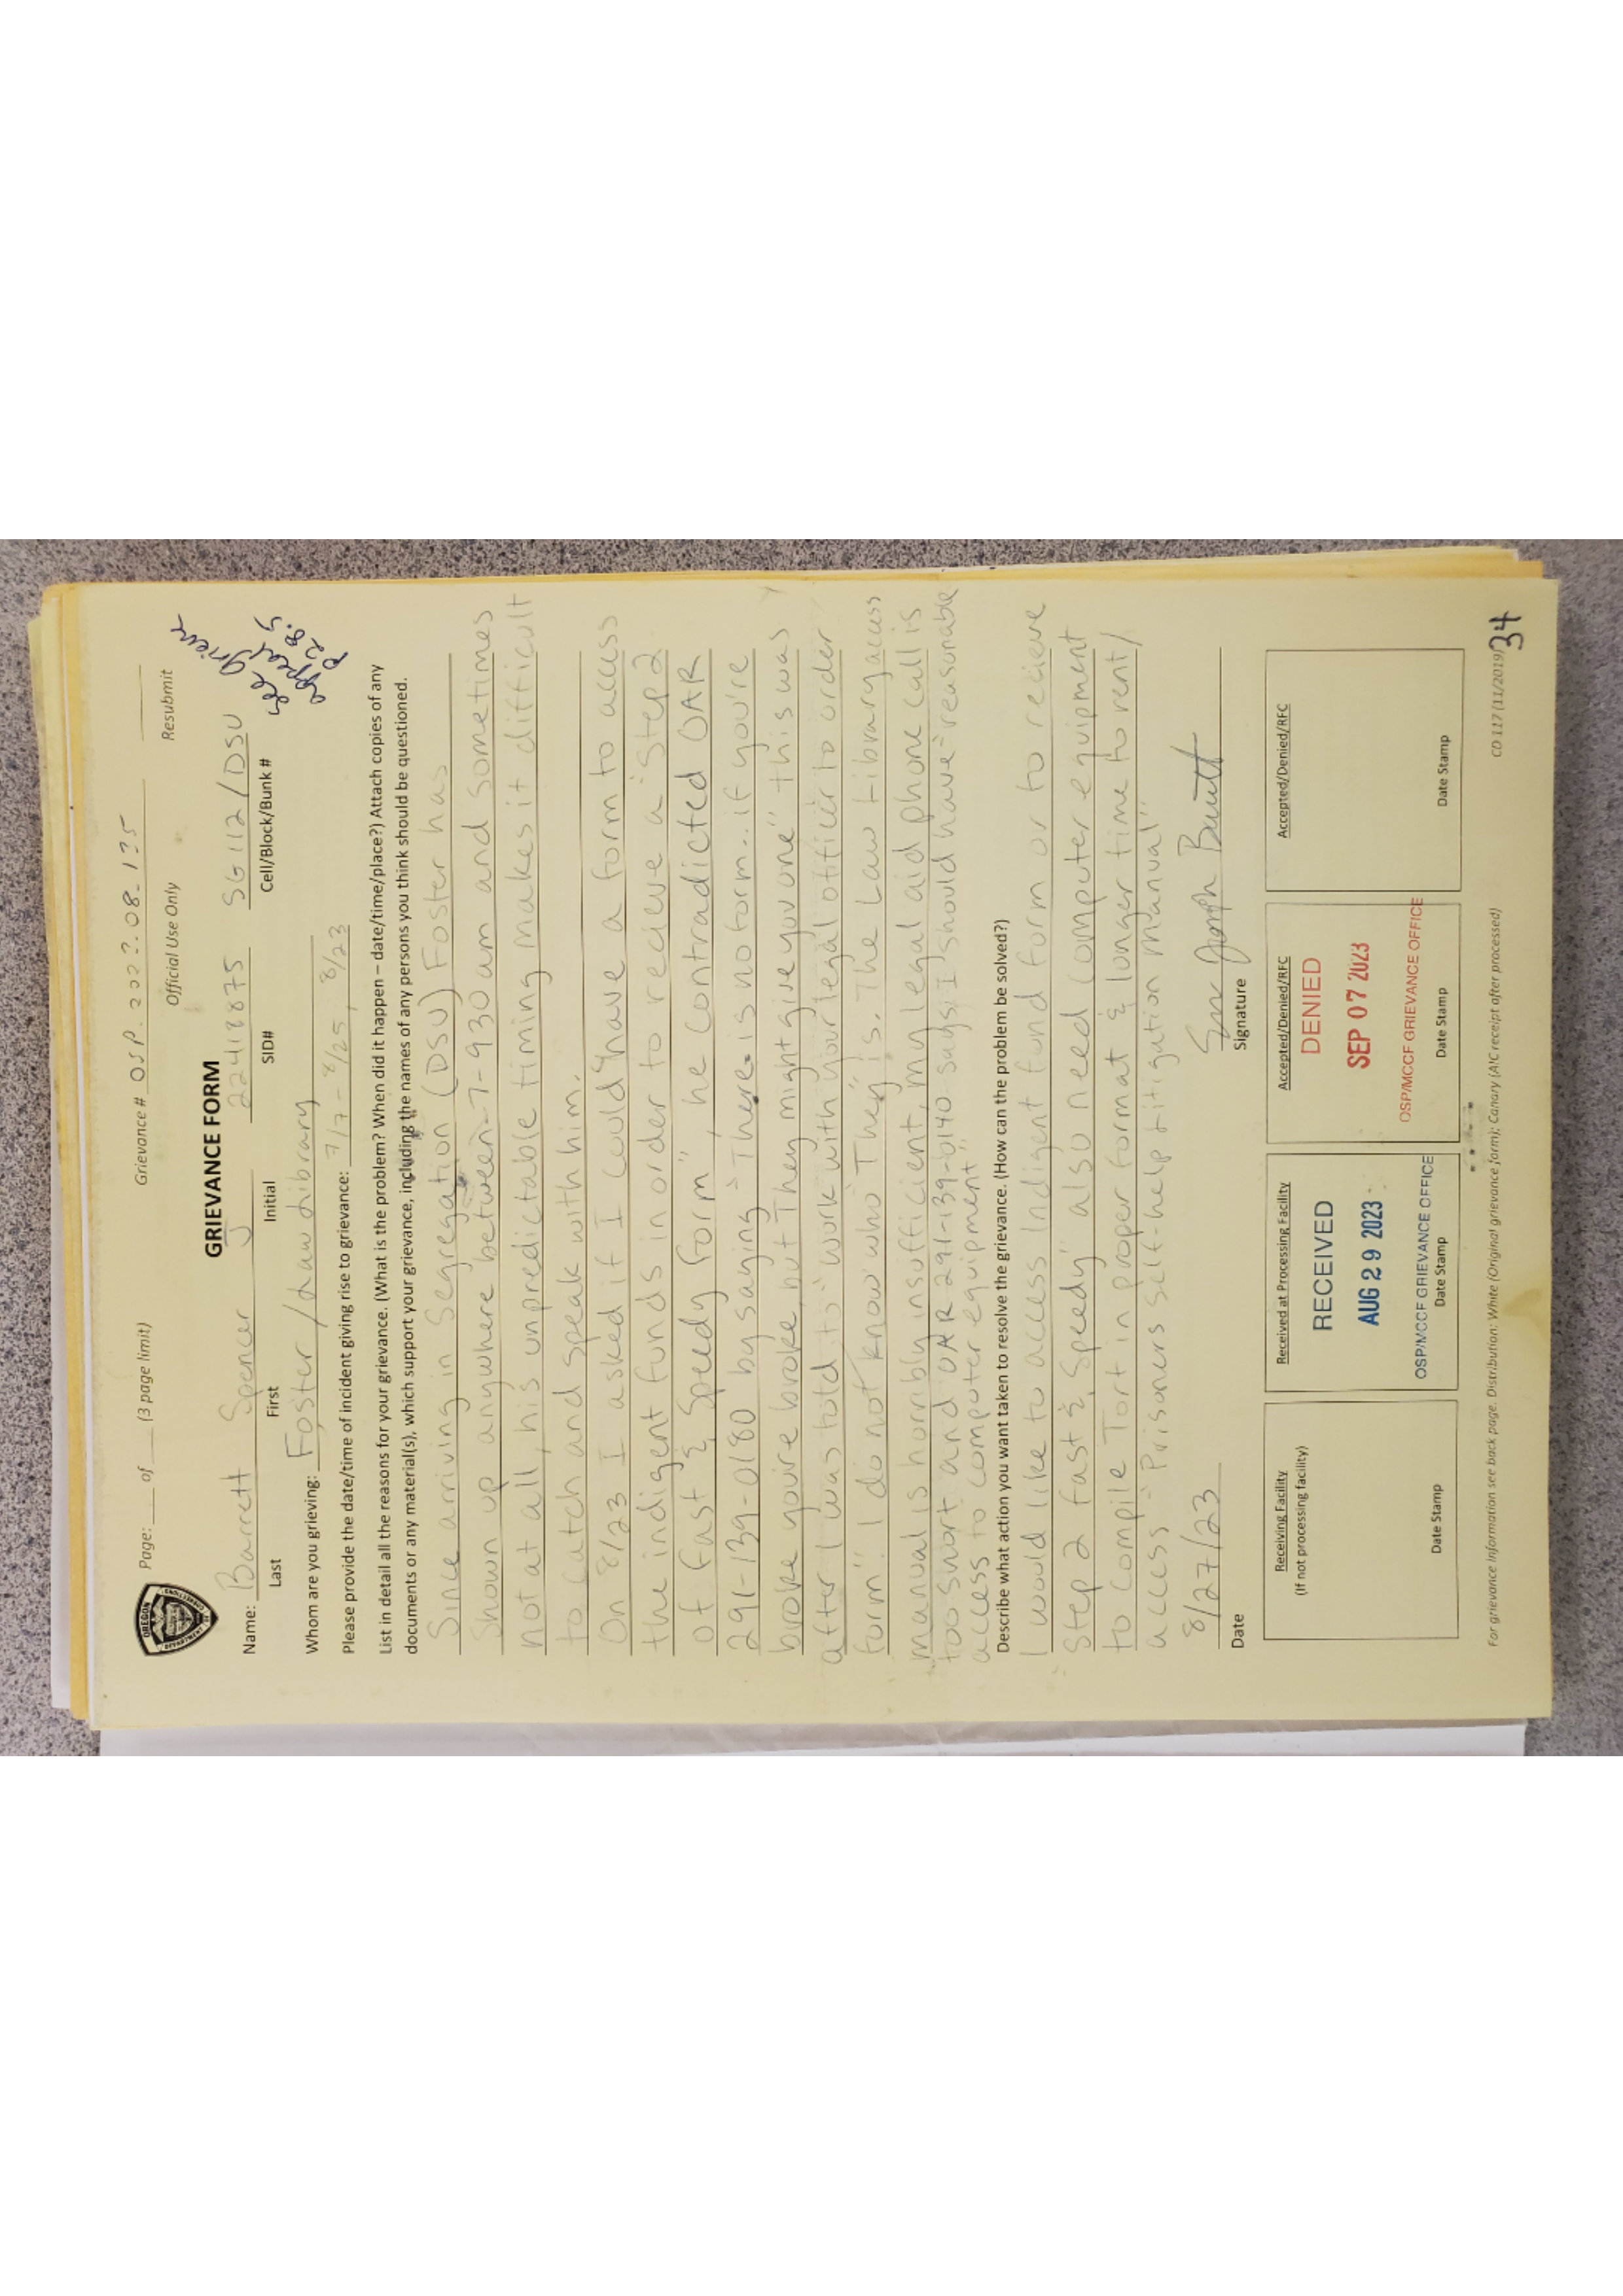 Page: ____ of ____ (3 page limit) Grievance # OSP. 2023.08.135
Official Use Only Resubmit
OREGON
DEPARTMENT
GRIEVANCE FORM
see grieve
appeal
p 28.5
Name: Barrett Spencer J 22418875 SG112/DSU
Last First Initial SID# Cell/Block/Bunk #
Whom are you grieving: Foster / Law Library
Please provide the date/time of incident giving rise to grievance: 7/7 - 8/25, 8/23
List in detail all the reasons for your grievance. (What is the problem? When did it happen – date/time/place?) Attach copies of any
documents or any material(s), which support your grievance, including the names of any persons you think should be questioned.
Since arriving in Segregation (DSU) Foster has
shown up anywhere between 7-930 am and sometimes
not at all, his unpredictable timing makes it difficult
to catch and speak with him.
On 8/23 I asked if I could have a form to access
the indigent funds in order to recieve a "Step 2
of fast & Speedy form", he contradicted OAR
291-139-0180 by saying "There is no form.. if you're
broke you're broke, but They might give you one" this was
after I was told to "work with your legal officer to order
form" I do not know who "They" is. The Law Library access
manual is horribly insufficient, my legal aid phone call is
too short and OAR 291-139-0140 says I should have "reasonable
access to computer equipment"
Describe what action you want taken to resolve the grievance. (How can the problem be solved?)
I would like to access Indigent fund form or to recieve
Step 2 fast & Speedy" also need computer equipment
to compile Tort in proper format & longer time to rent/
access "Prisoners Self-help Litigation Manual"
8/27/23
Date Signature
Receiving Facility
(If not processing facility)
Date Stamp
Received at Processing Facility
RECEIVED
AUG 29 2023
OSP/MCCF GRIEVANCE OFFICE
Date Stamp
Accepted/Denied/RFC
DENIED
SEP 07 2023
OSP/MCCF GRIEVANCE OFFICE
Date Stamp
Accepted/Denied/RFC
Date Stamp
For grievance information see back page. Distribution: White (Original grievance form); Canary (AIC receipt after processed) CD 117 (11/2019)
34